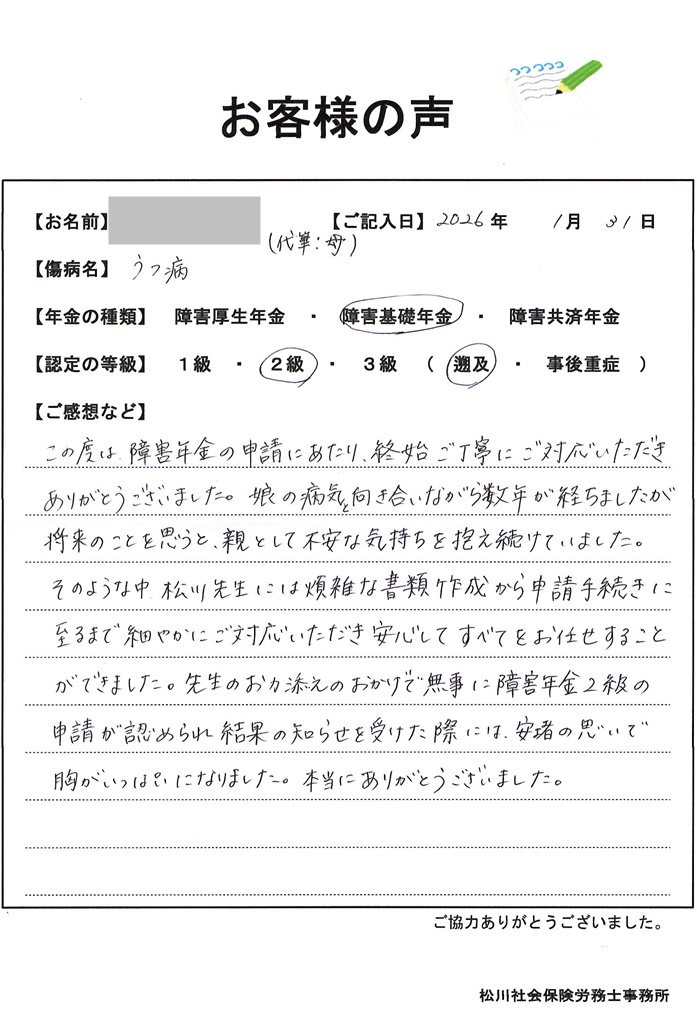 お客様の声
【お名前】 【ご記入日】 2026年 1月 31日
(代筆:母)
【傷病名】 うつ病
【年金の種類】 障害厚生年金 ・ 障害基礎年金 ・ 障害共済年金
【認定の等級】 1級 ・ 2級 ・ 3級 ( 遡及 ・ 事後重症 )
【ご感想など】
この度は、障害年金の申請にあたり、終始ご丁寧にご対応いただき
ありがとうございました。娘の病気と向き合いながら数年が経ちましたが
将来のことを思うと、親として不安な気持ちを抱え続けていました。
そのような中、松川先生には煩雑な書類作成から申請手続きに
至るまで細やかにご対応いただき安心してすべてをお任せすること
ができました。先生のお力添えのおかげで無事に障害年金2級の
申請が認められ結果の知らせを受けた際には、安堵の思いで
胸がいっぱいになりました。本当にありがとうございました。
ご協力ありがとうございました。
松川社会保険労務士事務所